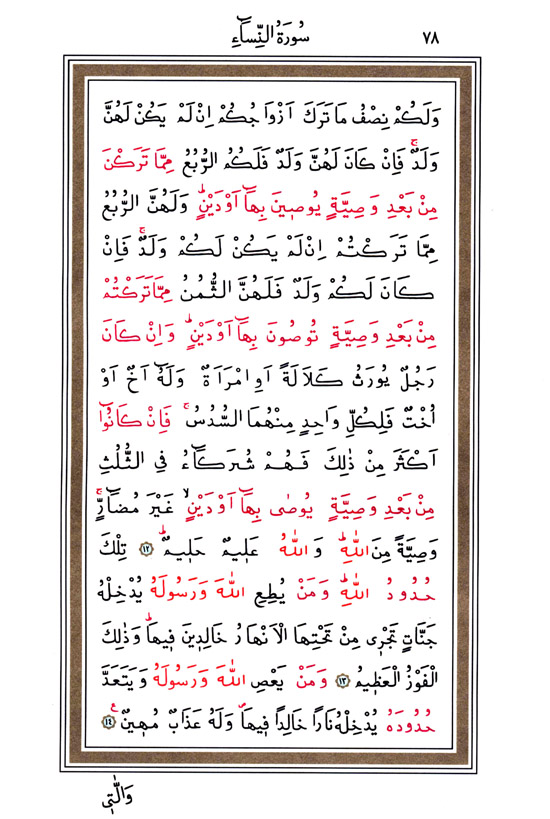 ٧٨ سُورَةُ النِّسَٓاءِ
وَلَكُمْ نِصْفُ مَا تَرَكَ اَزْوَاجُكُمْ اِنْ لَمْ يَكُنْ لَهُنَّ
وَلَدٌۚ فَاِنْ كَانَ لَهُنَّ وَلَدٌ فَلَكُمُ الرُّبُعُ مِمَّا تَرَكْنَ
مِنْ بَعْدِ وَصِيَّةٍ يُوصٖينَ بِهَٓا اَوْ دَيْنٍؕ وَلَهُنَّ الرُّبُعُ
مِمَّا تَرَكْتُمْ اِنْ لَمْ يَكُنْ لَكُمْ وَلَدٌۚ فَاِنْ
كَانَ لَكُمْ وَلَدٌ فَلَهُنَّ الثُّمُنُ مِمَّا تَرَكْتُمْ
مِنْ بَعْدِ وَصِيَّةٍ تُوصُونَ بِهَٓا اَوْ دَيْنٍؕ وَاِنْ كَانَ
رَجُلٌ يُورَثُ كَلَالَةً اَوِ امْرَاَةٌ وَلَهُٓ اَخٌ اَوْ
اُخْتٌ فَلِكُلِّ وَاحِدٍ مِنْهُمَا السُّدُسُۚ فَاِنْ كَانُٓوا
اَكْثَرَ مِنْ ذٰلِكَ فَهُمْ شُرَكَٓاءُ فِي الثُّلُثِ
مِنْ بَعْدِ وَصِيَّةٍ يُوصٰى بِهَٓا اَوْ دَيْنٍۙ غَيْرَ مُضَٓارٍّۚ
وَصِيَّةً مِنَ اللّٰهِؕ وَاللّٰهُ عَلٖيمٌ حَلٖيمٌؕ ﴿١٢﴾ تِلْكَ
حُدُودُ اللّٰهِؕ وَمَنْ يُطِعِ اللّٰهَ وَرَسُولَهُ يُدْخِلْهُ
جَنَّاتٍ تَجْرٖى مِنْ تَحْتِهَا الْاَنْهَارُ خَالِدٖينَ فٖيهَاؕ وَذٰلِكَ
الْفَوْزُ الْعَظٖيمُ ﴿١٣﴾ وَمَنْ يَعْصِ اللّٰهَ وَرَسُولَهُ وَيَتَعَدَّ
حُدُودَهُ يُدْخِلْهُ نَارًا خَالِدًا فٖيهَا وَلَهُ عَذَابٌ مُهٖينٌ ﴿١٤﴾
وَالّٰتٖى